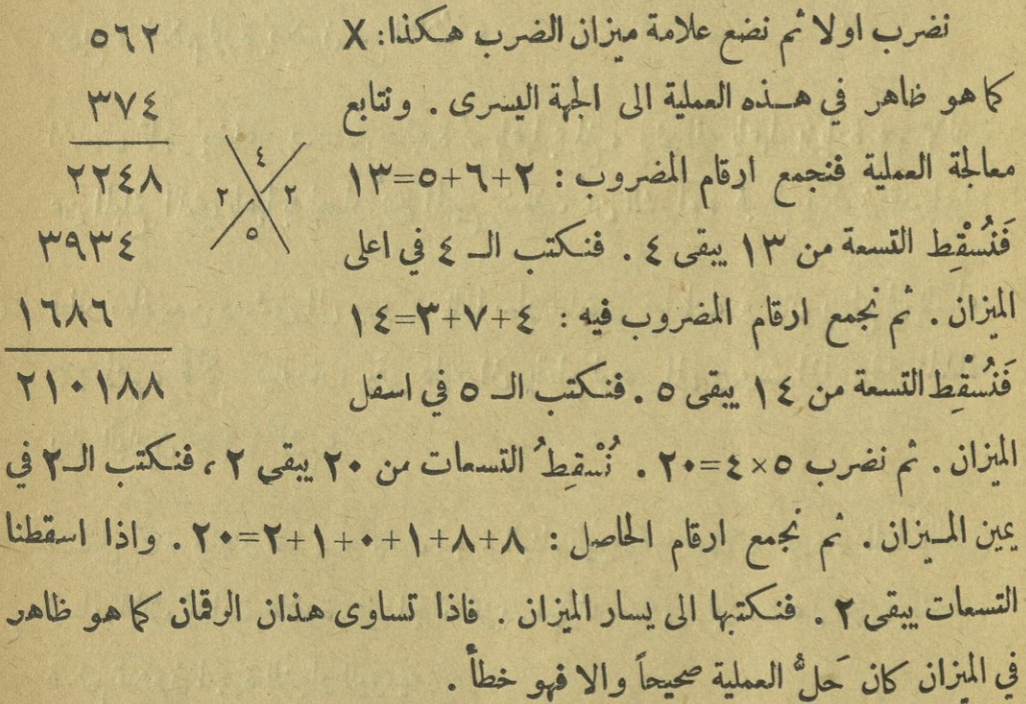 نضرب اولا ثم نضع علامة ميزان الضرب هكذا: X
كما هو ظاهر في هذه العملية الى الجهة اليسرى . ونتابع
معالجة العملية فنجمع ارقام المضروب : ٢+٦+٥=١٣
فَنُسْقِط التسعة من ١٣ يبقى ٤ . فنكتب الـ ٤ في اعلى
الميزان . ثم نجمع ارقام المضروب فيه : ٤+٧+٣=١٤
فَنُسْقِط التسعة من ١٤ يبقى ٥ . فنكتب الـ ٥ في اسفل
الميزان . ثم نضرب ٥×٤=٢٠ . نُسْقِطُ التسعات من ٢٠ يبقى ٢ ، فنكتب الـ ٢ في
يمين الميزان . ثم نجمع ارقام الحاصل : ٨+٨+١+٠+١+٢=٢٠ . واذا اسقطنا
التسعات يبقى ٢ . فنكتبها الى يسار الميزان . فاذا تساوى هذان الرقمان كما هو ظاهر
في الميزان كان حَلُّ العملية صحيحاً والا فهو خطأ .
٥٦٢
٣٧٤
٢٢٤٨
٣٩٣٤
١٦٨٦
٢١٠١٨٨
٤
٢ ٢
٥